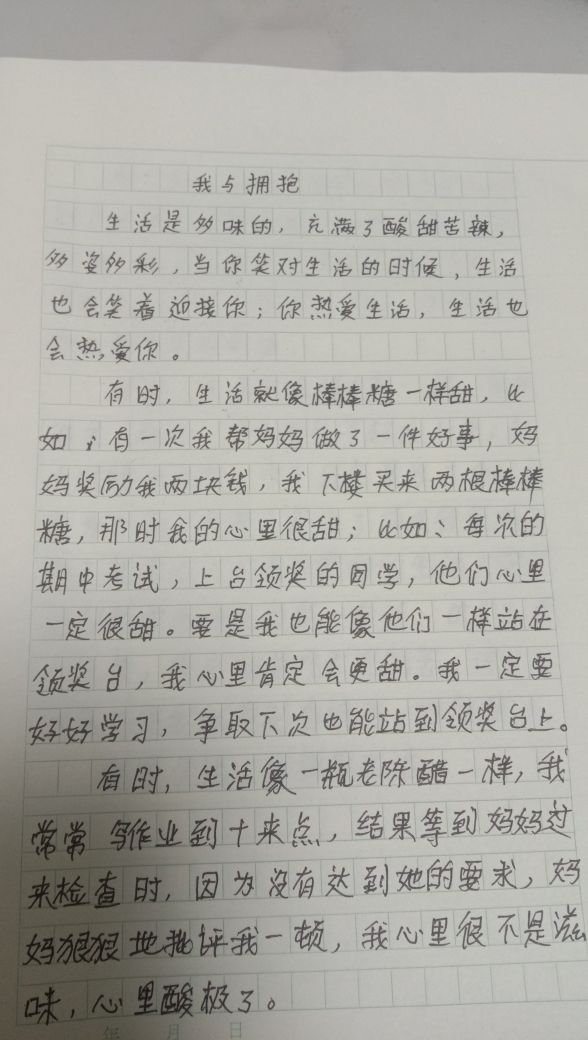 我与拥抱
生活是多味的，充满了酸甜苦辣，
多姿多彩，当你笑对生活的时候，生活
也会笑着迎接你；你热爱生活，生活也
会热爱你。
有时，生活就像棒棒糖一样甜，比
如；有一次我帮妈妈做了一件好事，妈
妈奖励我两块钱，我下楼买来两根棒棒
糖，那时我的心里很甜；比如：每次的
期中考试，上台领奖的同学，他们心里
一定很甜。要是我也能像他们一样站在
领奖台，我心里肯定会更甜。我一定要
好好学习，争取下次也能站到领奖台上。
有时，生活像一瓶老陈醋一样，我
常常写作业到十来点，结果等到妈妈过
来检查时，因为没有达到她的要求，妈
妈狠狠地批评我一顿，我心里很不是滋
味，心里酸极了。
年 月 日